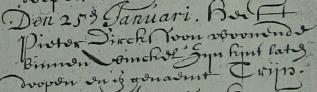 Den 25en Januari. Heeft
Pieter Dircks soon woonende
binnen Winckel Sijn kint laten
doopen en is genaemt Trijn.